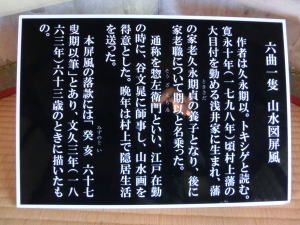 六曲一隻　山水図屏風
作者は久永期以。トキシゲと読む。
寛永十年（一七九八年）頃村上藩の
大目付を勤める浅井家に生まれ、藩
の家老久永期貞の養子となり、後に
家老職について期以と名乗った。
通称を惣左衛門といい、江戸在勤
の時に、谷文晁に師事し、山水画を
得意とした。晩年は村上で隠居生活
を送った。
本屏風の落款には「癸亥　六十七
叟期以筆」とあり、文久三年（一八
六三年）六十三歳のときに描いたも
の。